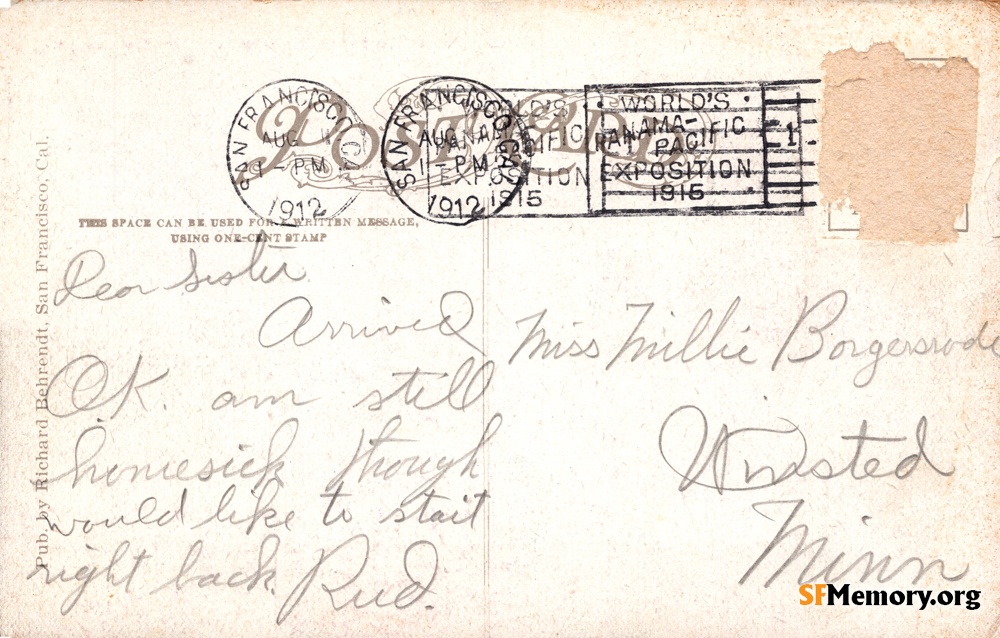 POST CARD
SAN FRANCISCO, CAL.
AUG
1 - PM
1912
SAN FRANCISCO, CAL.
AUG
1 - PM
1912
WORLD'S
PANAMA-
PACIFIC
EXPOSITION
1915
WORLD'S
PANAMA-
PACIFIC
EXPOSITION
1915
1
THIS SPACE CAN BE USED FOR A WRITTEN MESSAGE,
USING ONE-CENT STAMP
Pub. by Richard Behrendt, San Francisco, Cal.
Dear Sister
Arrived
OK. am still
homesick though
would like to start
right back. Rud.
Miss Millie Borgersrode
Winsted
Minn
SFMemory.org